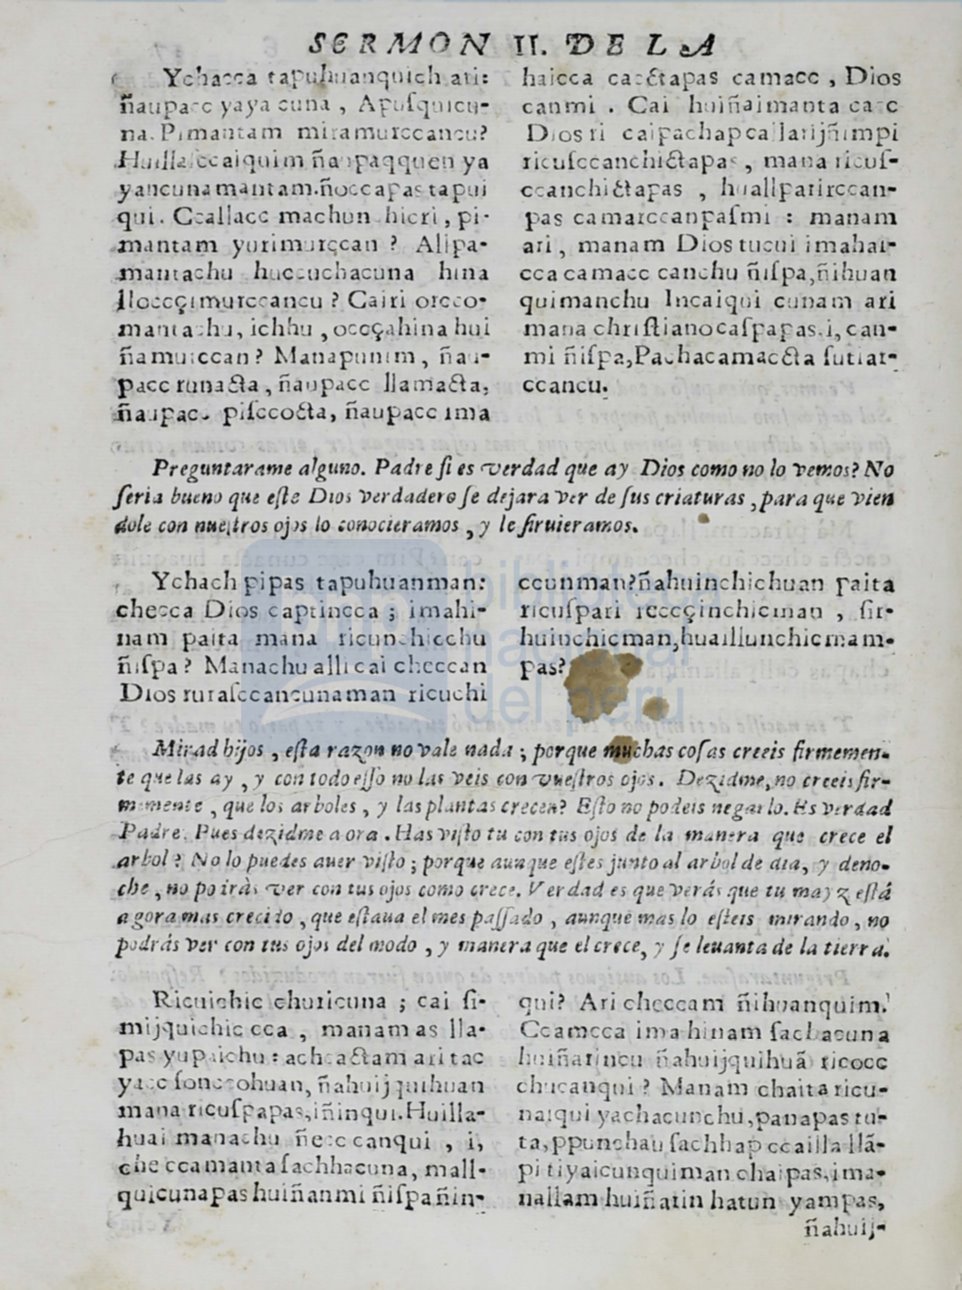 SERMON II. DE LA
Ychacca tapuhuanquich ari:
ñaupacc yayacuna, Apusquicu-
na. Pimantam miramurccancu?
Huillaccaiquim ñaupaqquen ya
yancunamantam. ñoccapas tapui
qui. Ccallacc machun hicri, pi-
mantam yurimurçcan? Allpa-
mantachu huccuchacuna hina
lloccçimurccancu? Cairi orcco-
mantachu, ichhu, occçahina hui
ñamurccan? Manapunim, ñau-
pacc runacta, ñaupacc llamacta,
ñaupacc pisccocta, ñaupacc ima
haicca cacctapas camacc, Dios
canmi. Cai huiñaimanta cacc
Diosri caipachapcallarijñimpi
ricusccanchictapas, mana ricus-
ccanchictapas, huallparirccan-
pas camarccanpasmi: manam
ari, manam Dios tucui imahai-
cca camacc canchu ñispa, ñihuan
quimanchu Incaiqui cunam ari
mana christianocaspapas. i, can-
mi ñispa, Pachacamaccta sutiar-
ccancu.
Preguntarame alguno. Padre si es verdad que ay Dios como no lo vemos? No
seria bueno que este Dios verdadero se dejara ver de sus criaturas, para que vien
dole con nuestros ojos lo conocieramos, y le siruieramos.
Ychach pipas tapuhuanman:
checca Dios captincca; imahi-
nam paita mana ricunchicchu
ñispa? Manachu alli cai checcan
Dios rurasccancunaman ricuchi
ccunman? ñahuinchichuan paita
ricuspari reccçinchicman, sir-
huinchicman, huaillunchicmam-
pas?
Mirad hijos, esta razon no vale nada; porque muchas cosas creeis firmemen-
te que las ay, y con todo esso no las veis con vuestros ojos. Dezidme, no creeis fir-
memente, que los arboles, y las plantas crecen? Esto no podeis negarlo. Es verdad
Padre. Pues dezidme aora. Has visto tu con tus ojos de la manera que crece el
arbol? No lo puedes auer visto; porque aunque estes junto al arbol de dia, y deno-
che, no podràs ver con tus ojos como crece. Verdad es que verás que tu mayz està
agora mas crecido, que estaua el mes passado, aunque mas lo esteis mirando, no
podràs ver con tus ojos del modo, y manera que el crece, y se leuanta de la tierra.
Ricuichic churicuna; cai si-
mijquichic cca, manam as lla-
pas yupaichu: achcactam ari tac
yacc sonccohuan, ñahuijquihuan
mana ricuspapas, iñinqui. Huilla-
huai manachu ñecc canqui, i,
checcamanta sachhacuna, mall-
quicunapas huiñanmi ñispa ñin-
qui? Ari checcam ñihuanquim.
Ccamcca imahinam sachacuna
huiñarincu ñahuijquihuã ricocc
chucanqui? Manam chaita ricu-
naiqui yachacunchu, panapas tu-
ta, ppunchau sachhap ccailla llã-
pi tiyaicunquiman chaipas, ima-
nallam huiñatin hatun yampas,
ñahuij-
biblioteca
nacional
del peru